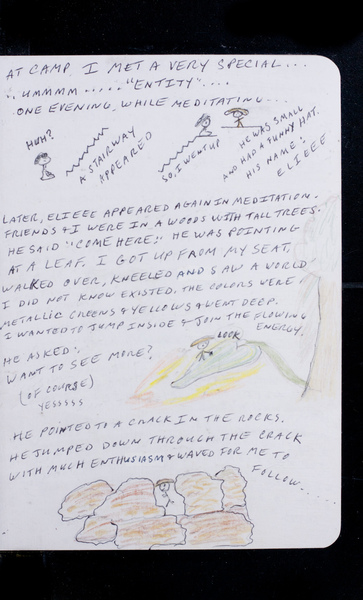 AT CAMP, I MET A VERY SPECIAL...
..UMMMM....."ENTITY"....
ONE EVENING, WHILE MEDITATING...
HUH?
A STAIRWAY
APPEARED
SO, I WENT UP
HE WAS SMALL
AND HAD A FUNNY HAT.
HIS NAME:
ELIEEE
LATER, ELIEEE APPEARED AGAIN IN MEDITATION.
FRIENDS & I WERE IN A WOODS WITH TALL TREES.
HE SAID "COME HERE:" HE WAS POINTING
AT A LEAF. I GOT UP FROM MY SEAT,
WALKED OVER, KNEELED AND SAW A WORLD
I DID NOT KNOW EXISTED. THE COLORS WERE
METALLIC GREENS & YELLOWS & WENT DEEP.
I WANTED TO JUMP INSIDE & JOIN THE FLOWING
ENERGY.
LOOK
HE ASKED:
WANT TO SEE MORE?
(OF COURSE)
YESSSSS
HE POINTED TO A CRACK IN THE ROCKS.
HE JUMPED DOWN THROUGH THE CRACK
WITH MUCH ENTHUSIASM & WAVED FOR ME TO
FOLLOW.....